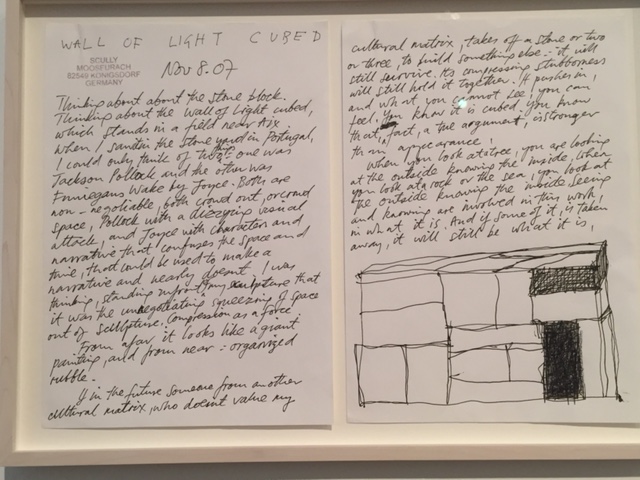 WALL OF LIGHT CUBED
SCULLY
MOOSEURACH
82549 KÖNIGSDORF
GERMANY
Nov 8.07
Thinking about about the stone block.
Thinking about the Wall of Light cubed,
which stands in a field near Aix.
When I stand in the stone yard in Portugal,
I could only think of two: one was
Jackson Pollock and the other was
Finnegans Wake by Joyce. Both are
non-negotiable, both crowd out, or crowd
space, Pollock with a dizzying visual
attack, and Joyce with characters and
narrative that confuses the space and
time, that could be used to make a
narrative and nearly doesnt. I was
thinking, standing infront my sculpture that
it was the unnegotiating squeezing of space
out of sculpture. Compression as a force
From afar, it looks like a giant
painting, and from near: organized
rubble.
If in the future someone from another
cultural matrix, who doesnt value my
cultural matrix, takes off a stone or two
or three, to build something else: it will
still survive. Its compressing stubborness
will still hold it together. It pushes in,
and what you cannot see, you can
feel. You know it is cubed, you know
that, fact, a the argument, is stronger
than appearance!
When you look at a tree, you are looking
at the outside knowing the inside, when
you look at a rock or the sea, you look at
the outside knowing the inside. Seeing
and knowing are involved in this work,
in what it is. And if some of it, is taken
away, it will still be what it is.